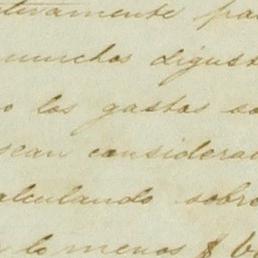 ativamente pa
munchos digust
o los gastos so
sean considera
alculando sobre
lo menos $